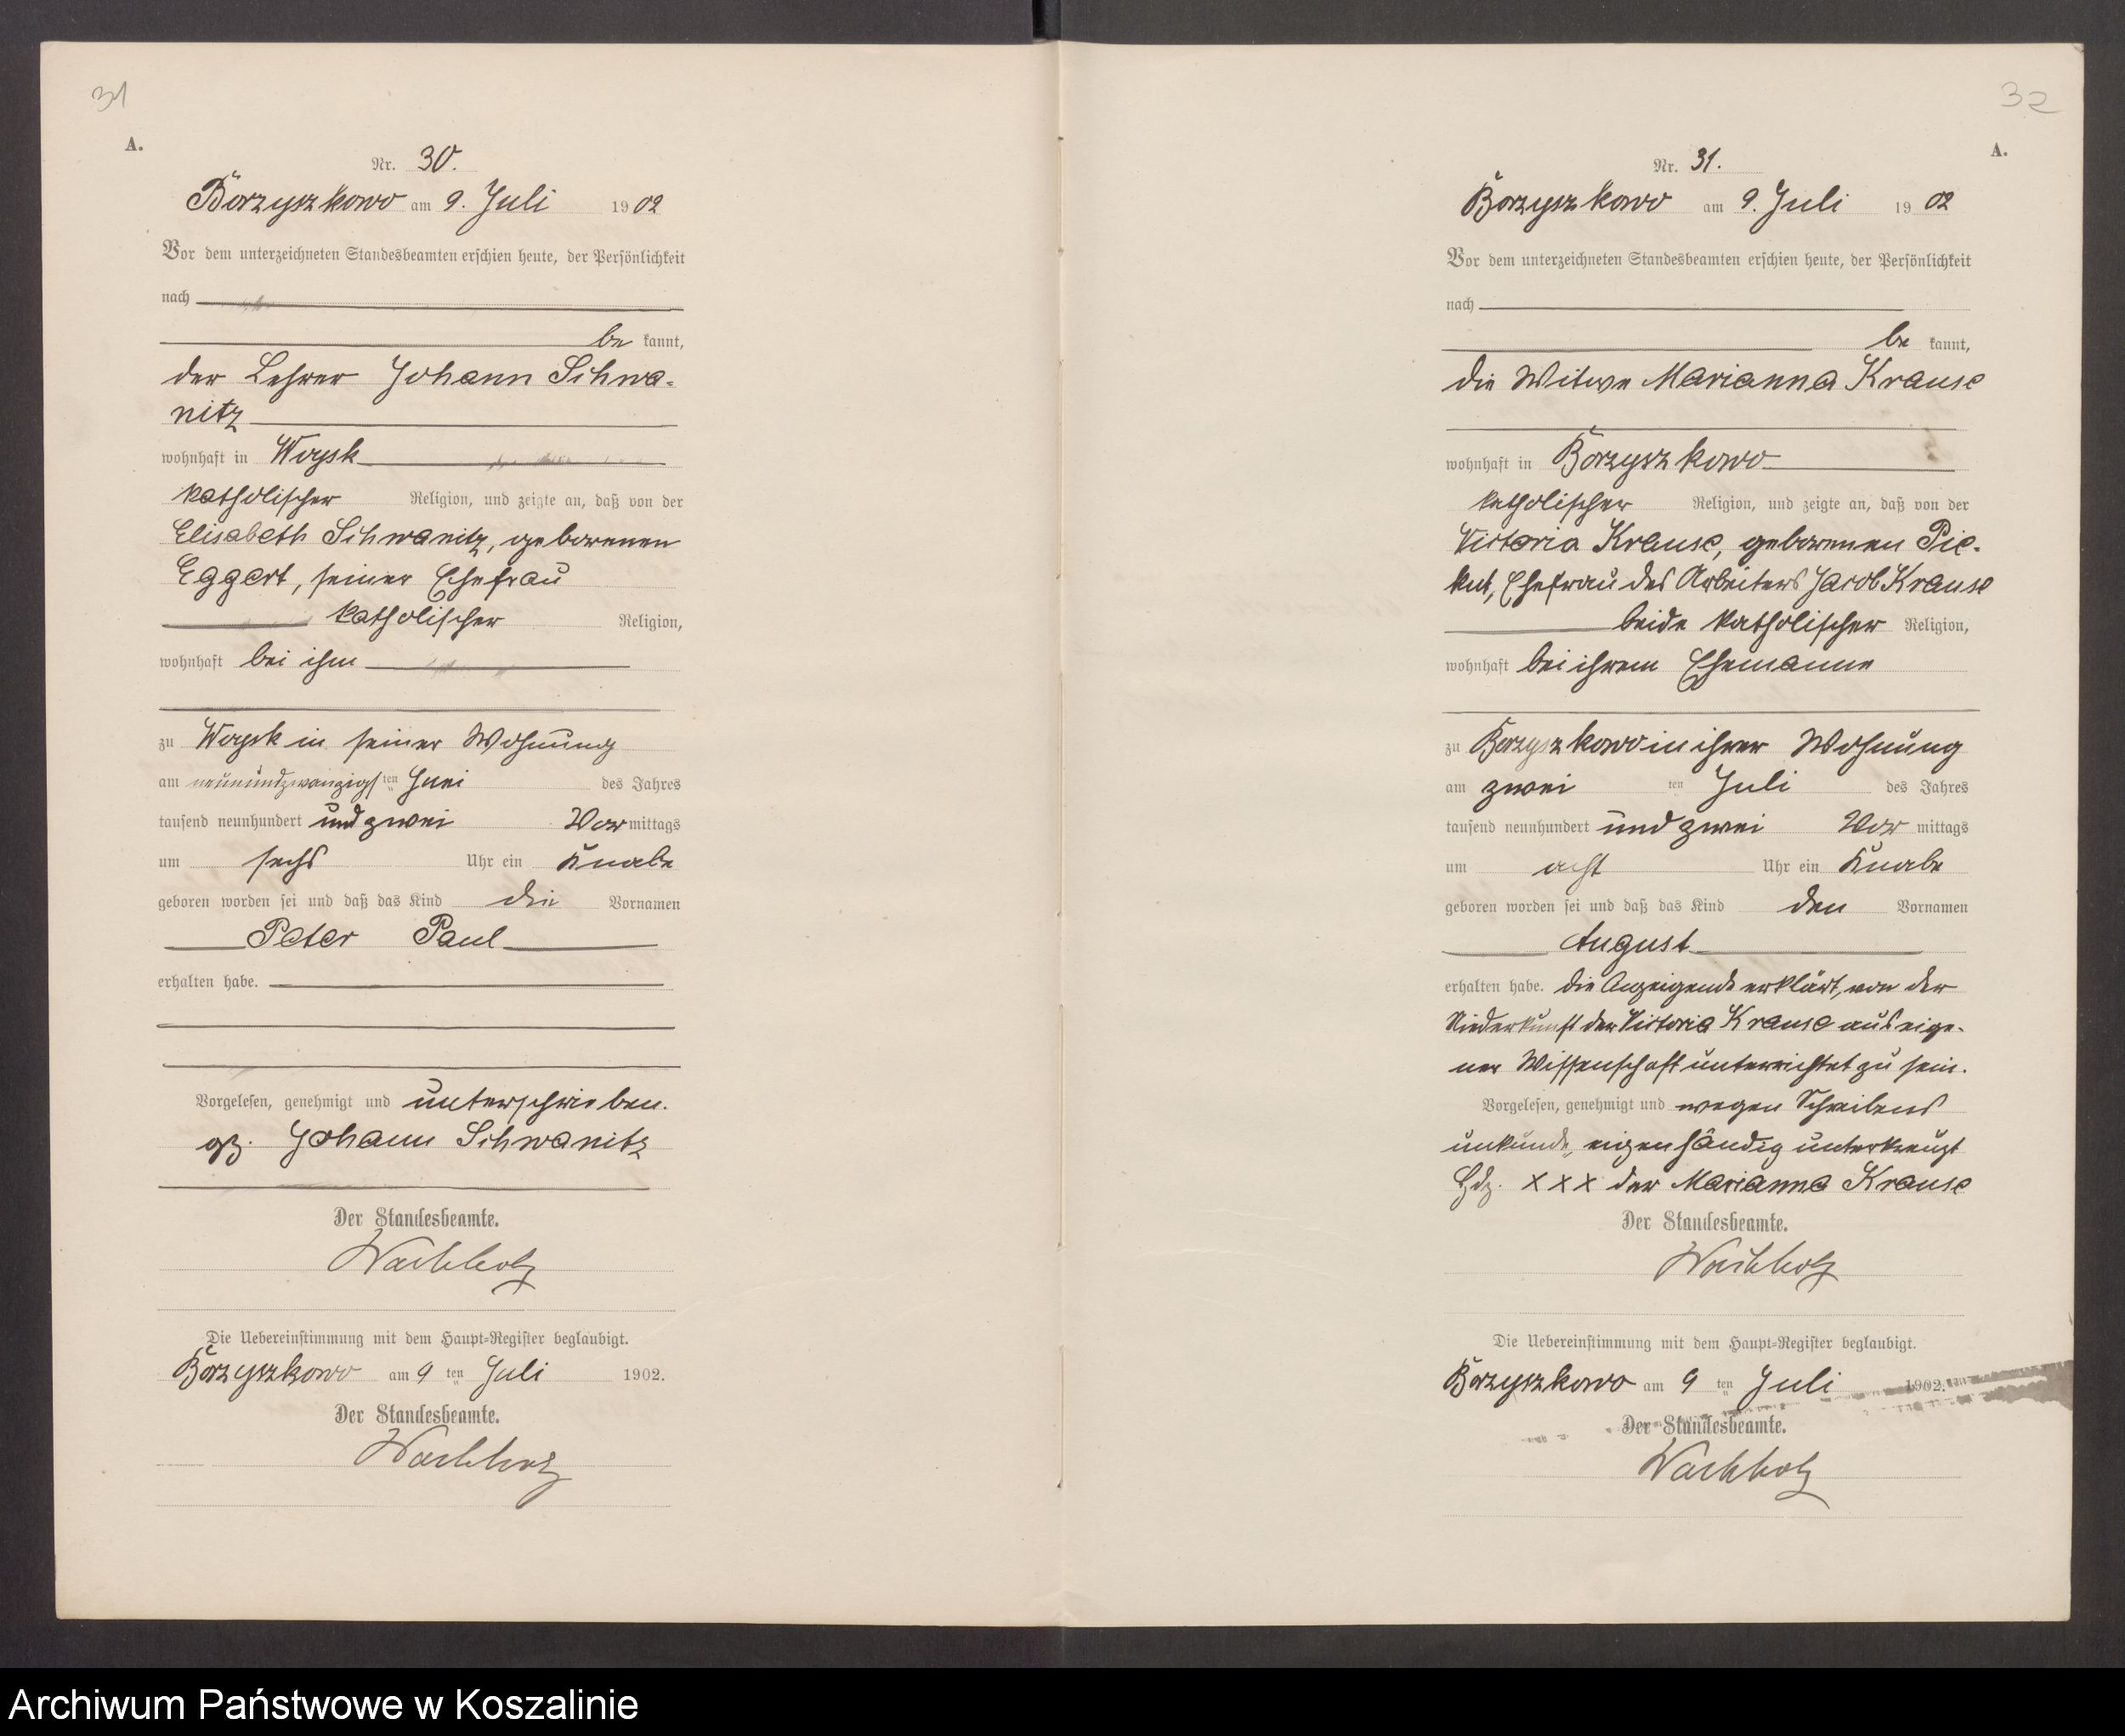 31
A.
Nr. 30.
Borzyszkowo am 9. Juli 1902
Vor dem unterzeichneten Standesbeamten erschien heute, der Persönlichkeit
nach
be kannt,
der Lehrer Johann Schwa-
nitz
wohnhaft in Woysk
katholischer Religion, und zeigte an, daß von der
Elisabeth Schwanitz, geborenen
Eggert, seiner Ehefrau
katholischer Religion,
wohnhaft bei ihm
zu Woysk in seiner Wohnung
am neunundzwanzigsten Juni des Jahres
tausend neunhundert und zwei Vormittags
um sechs Uhr ein Knabe
geboren worden sei und daß das Kind die Vornamen
Peter Paul
erhalten habe.
Vorgelesen, genehmigt und unterschrieben.
gz. Johann Schwanitz
Der Standesbeamte.
Wachholz
Die Uebereinstimmung mit dem Haupt-Register beglaubigt.
Borzyszkowo am 9ten Juli 1902.
Der Standesbeamte.
Wachholz
32
A.
Nr. 31.
Borzyszkowo am 9. Juli 1902
Vor dem unterzeichneten Standesbeamten erschien heute, der Persönlichkeit
nach
be kannt,
die Witwe Marianna Krause
wohnhaft in Borzyszkowo
katholischer Religion, und zeigte an, daß von der
Victoria Krause, geborenen Pie-
kut, Ehefrau des Arbeiters Jacob Krause
beide katholischer Religion,
wohnhaft bei ihrem Ehemanne
zu Borzyszkowo in ihrer Wohnung
am zweiten Juli des Jahres
tausend neunhundert und zwei Vormittags
um acht Uhr ein Knabe
geboren worden sei und daß das Kind den Vornamen
August
erhalten habe. Die Anzeigende erklärt, von der
Niederkunft der Victoria Krause aus eige-
ner Wissenschaft unterrichtet zu sein.
Vorgelesen, genehmigt und wegen Schreibens
unkunde, eigenhändig unterkreuzt
Hdz. x x x der Marianna Krause
Der Standesbeamte.
Wachholz
Die Uebereinstimmung mit dem Haupt-Register beglaubigt.
Borzyszkowo am 9ten Juli 1902.
Der Standesbeamte.
Wachholz
Archiwum Państwowe w Koszalinie